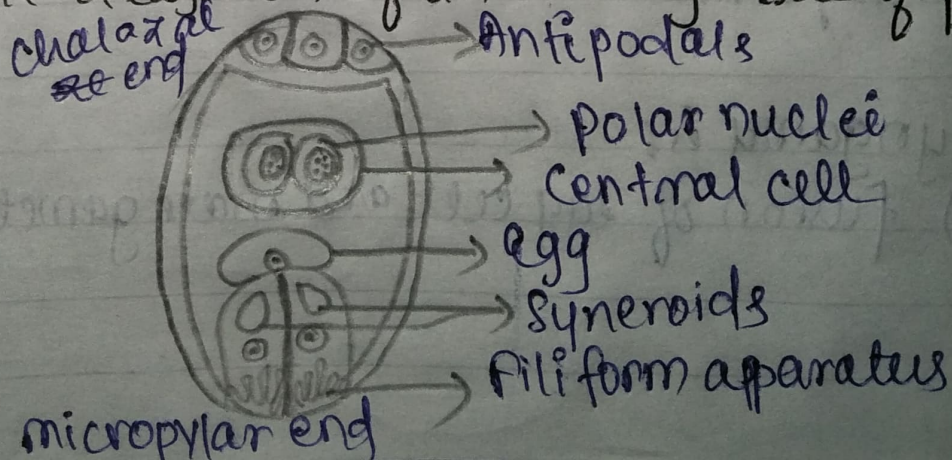 chalazal
end
Antipodals
Polar nuclei
Central cell
egg
Syneroids
Filiform apparatus
micropylar end